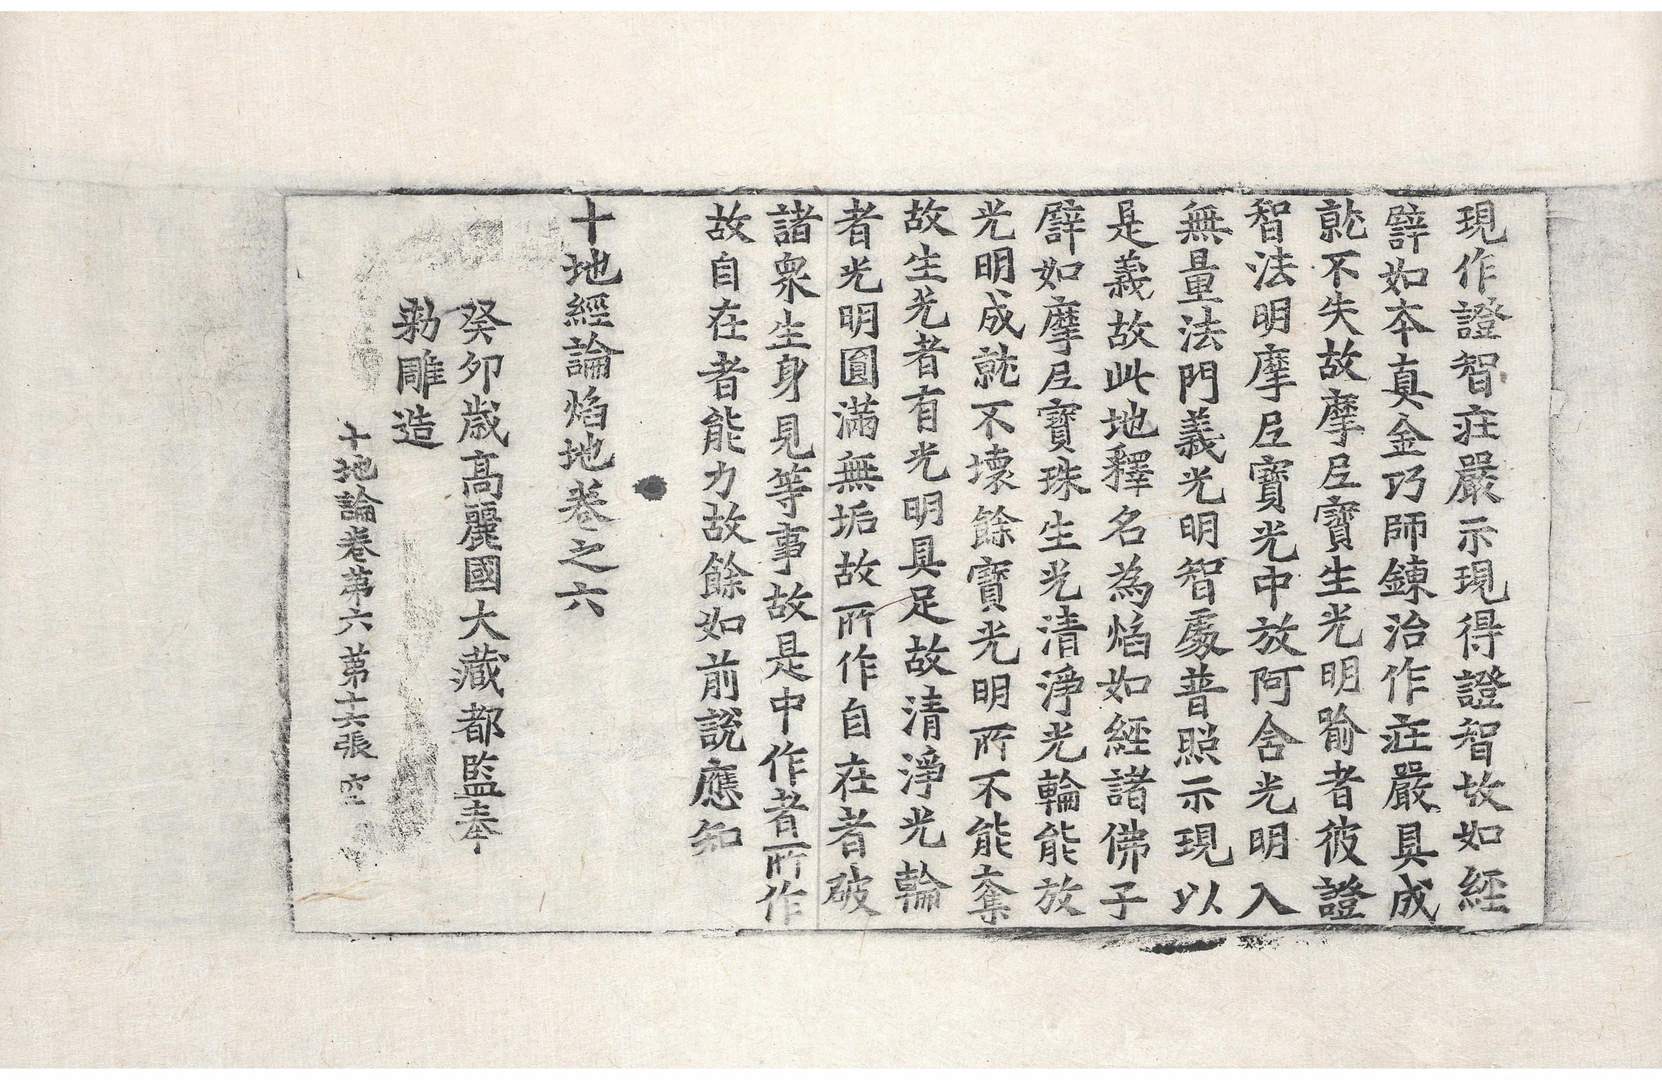 現作證智莊嚴示現得證智故如經
譬如本真金巧師鍊治作莊嚴具成
就不失故摩尼寶生光明喻者彼證
智法明摩尼寶光中放阿含光明入
無量法門義光明智處普照示現以
是義故此地釋名為焰如經諸佛子
譬如摩尼寶珠生光清淨光輪能放
光明成就不壞餘寶光明所不能奪
故生光者有光明具足故清淨光輪
者光明圓滿無垢故所作自在者破
諸衆生身見等事故是中作者所作
故自在者能力故餘如前說應知
十地經論焰地卷之六
癸卯歲高麗國大藏都監奉
勅雕造
十地論卷第六 第十六張 空